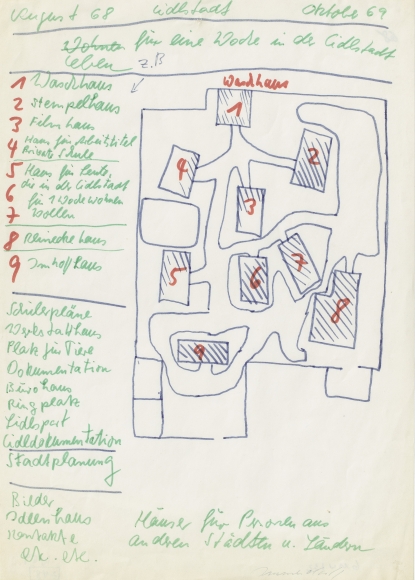 August 68 Lidlstadt Oktober 69
Wohnen für eine Woche in der Lidlstadt
leben z.B
1 Waschhaus
2 Stempelhaus
3 Filmhaus
4 Haus für Arbeitstitel
Private Schule
5 Haus für Leute,
die in der Lidlstadt
6 für 1 Woche wohnen
7 wollen
8 Reinecke haus
9 Imhoffhaus
Waschhaus
1
2
3
4
5
6
7
8
9
Schülerpläne
Werkstatthaus
Platz für Tiere
Dokumentation
Bürohaus
Ringplatz
Lidlsport
Lidldokumentation
Stadtplanung
Bilder
Ideenhaus
Kontakte
etc. etc.
Häuser für Personen aus
anderen Städten u. Ländern